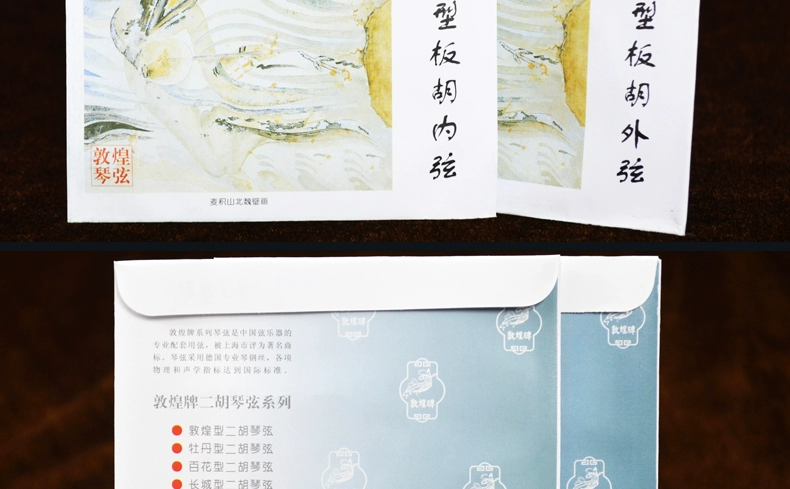 型板胡内弦
型板胡外弦
敦煌
琴弦
麦积山北魏壁画
敦煌牌系列琴弦是中国弦乐器的
专业配套用弦,被上海市评为著名商
标。琴弦采用德国专业琴钢丝,各项
物理和声学指标达到国际标准。
敦煌牌二胡琴弦系列
敦煌型二胡琴弦
牡丹型二胡琴弦
百花型二胡琴弦
长城型二胡琴弦
敦煌牌
敦煌牌
敦煌牌
敦煌牌